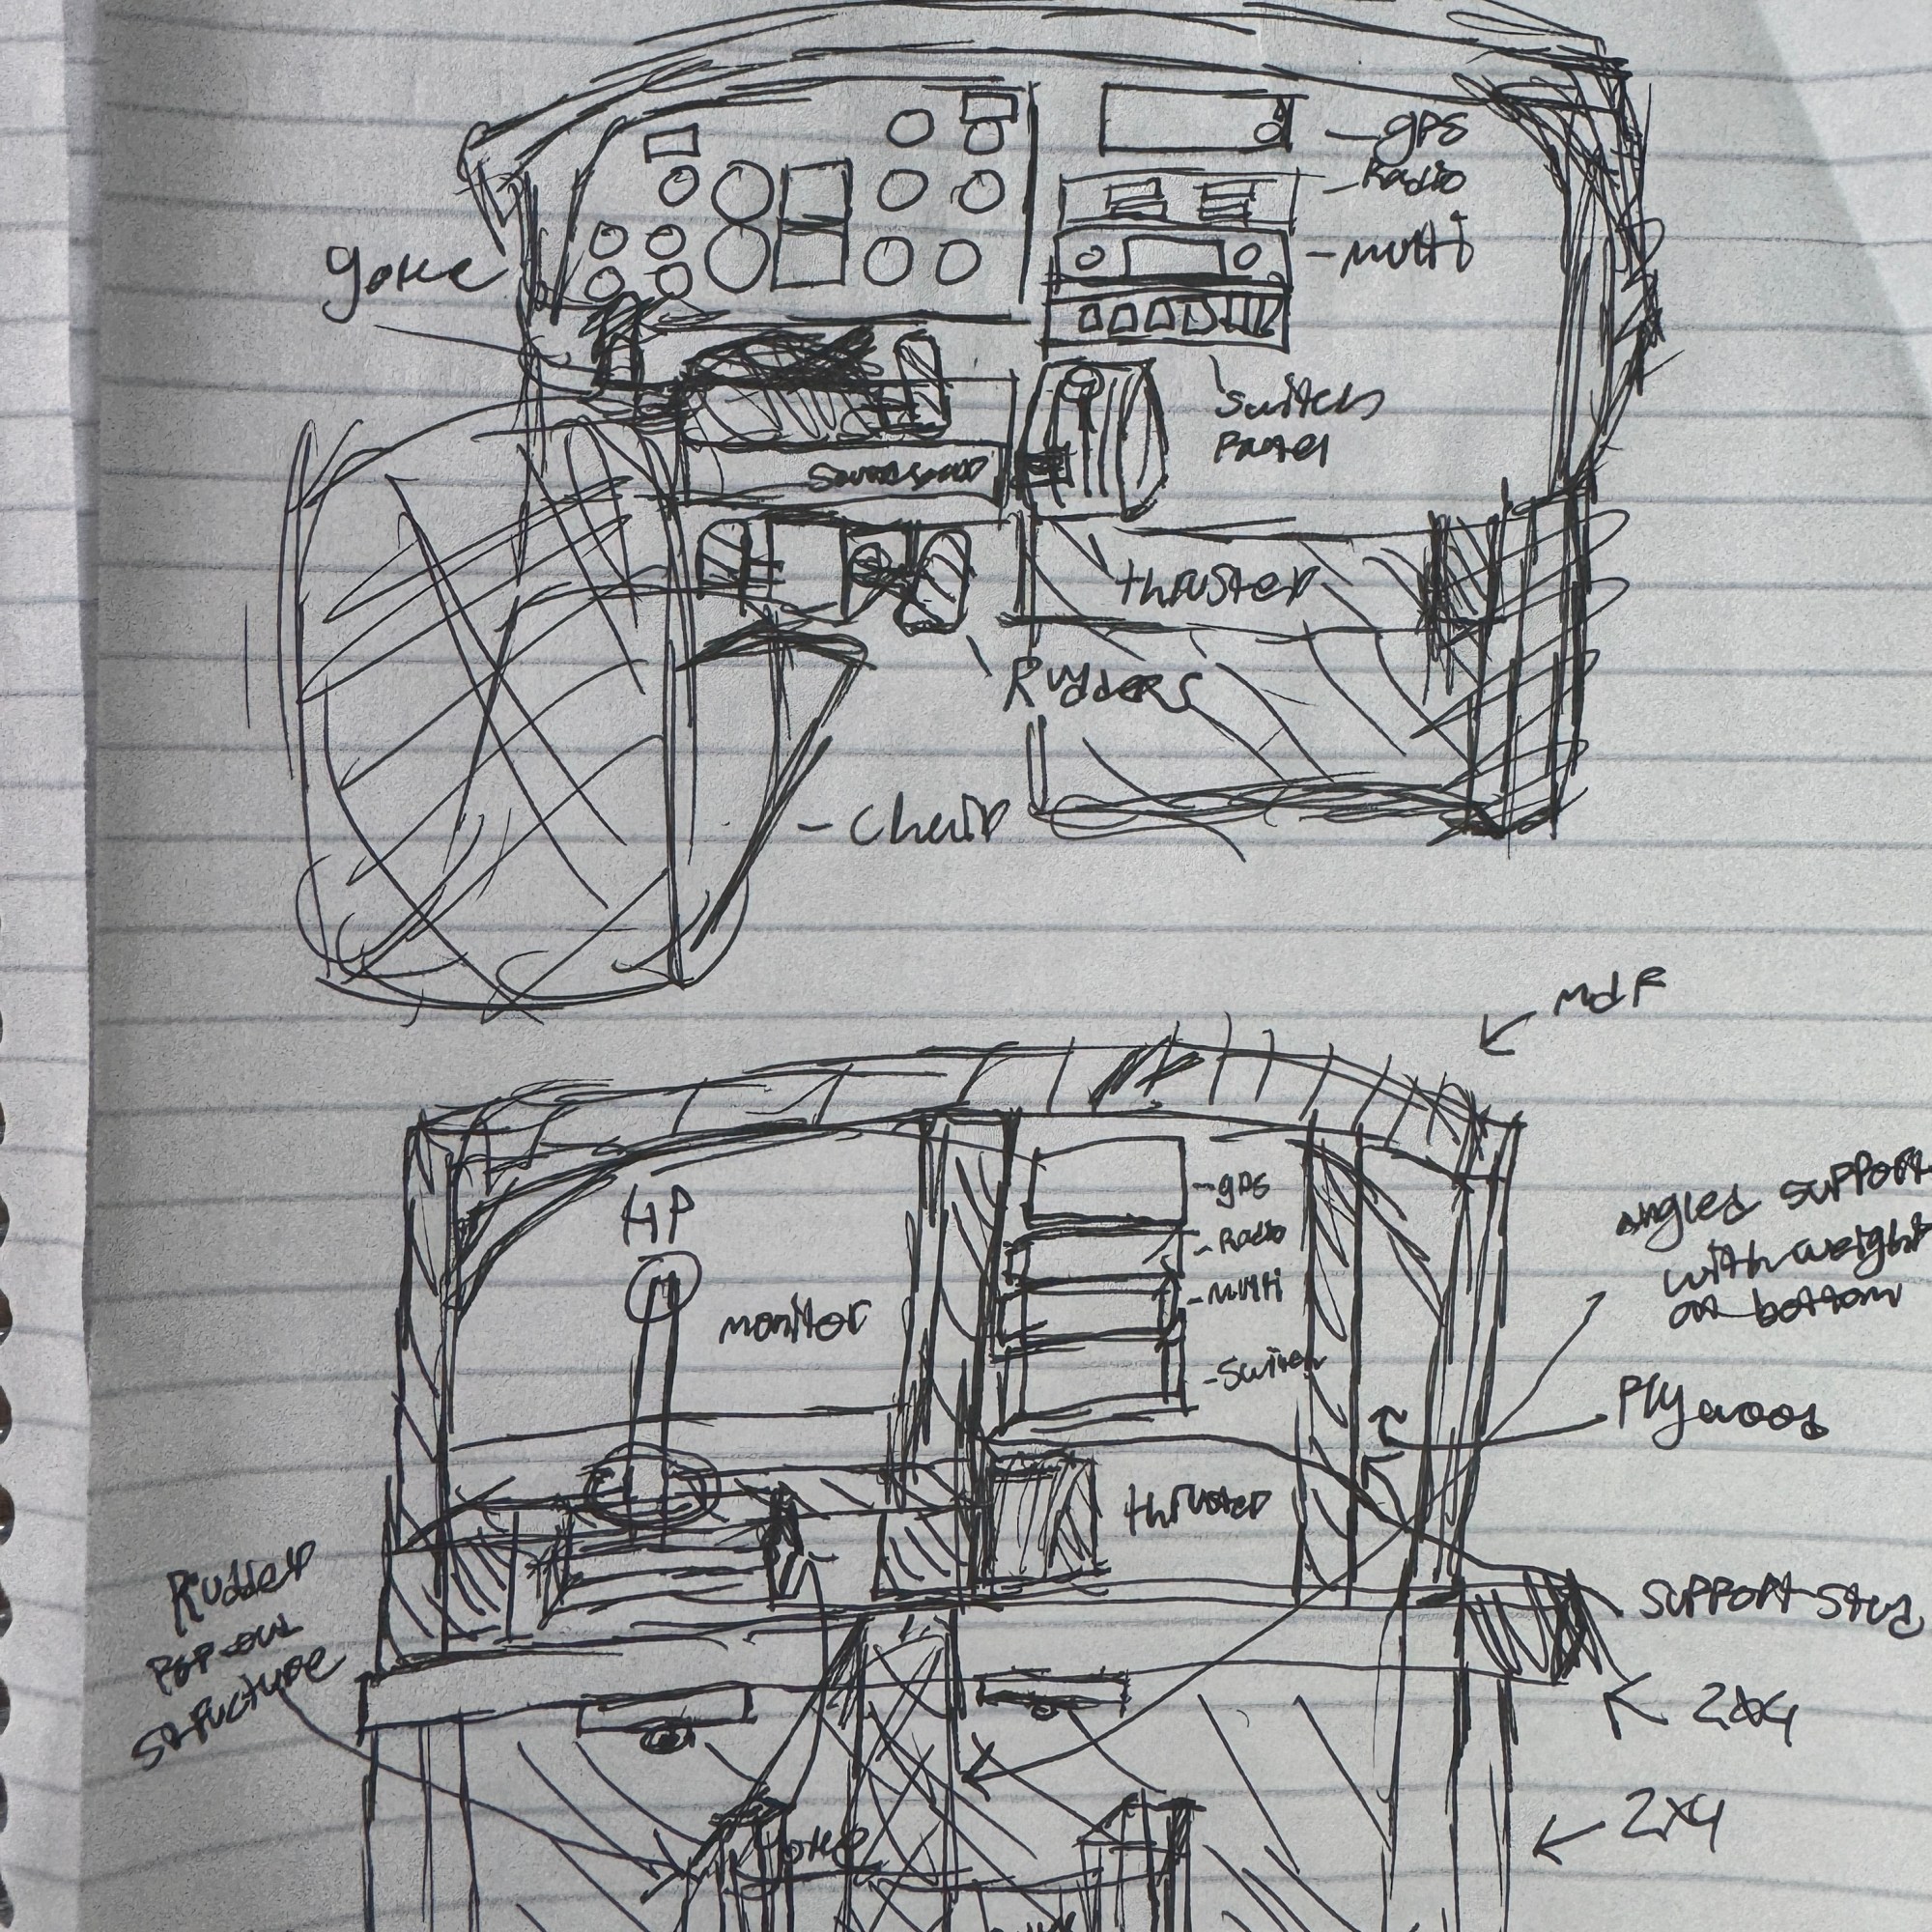 -gps
-Radio
yoke
-multi
Switch
Panel
thruster
Rudders
-Chair
mdf
HP
-gps
angled support
with weight
on bottom
-Radio
monitor
-multi
-Switch
Plywood
thruster
Rudder
Pop-out
structure
support stud
2x4
2x4